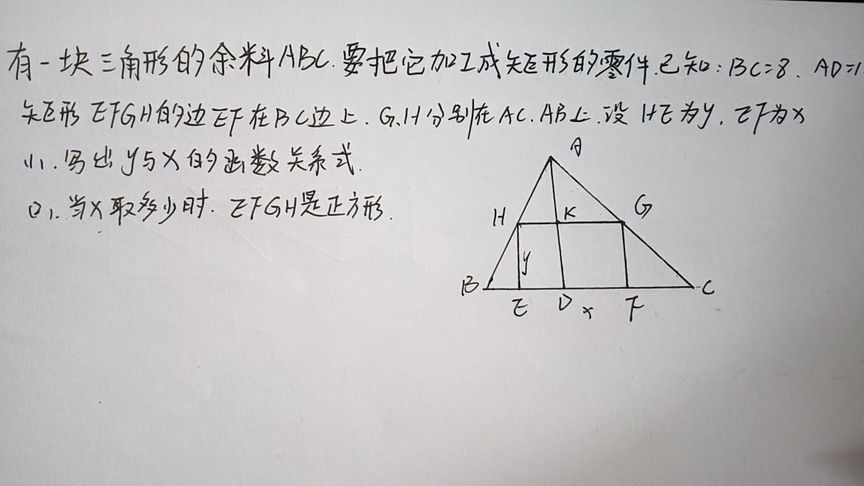 有一块三角形的余料ABC.要把它加工成矩形的零件.已知:BC=8、AD=1
矩形EFGH的边EF在BC边上.G、H分别在AC、AB上.设HE为y,EF为x
(1).写出y与x的函数关系式.
(2).当x取多少时.EFGH是正方形.
A
H K G
y
B C
E D x F